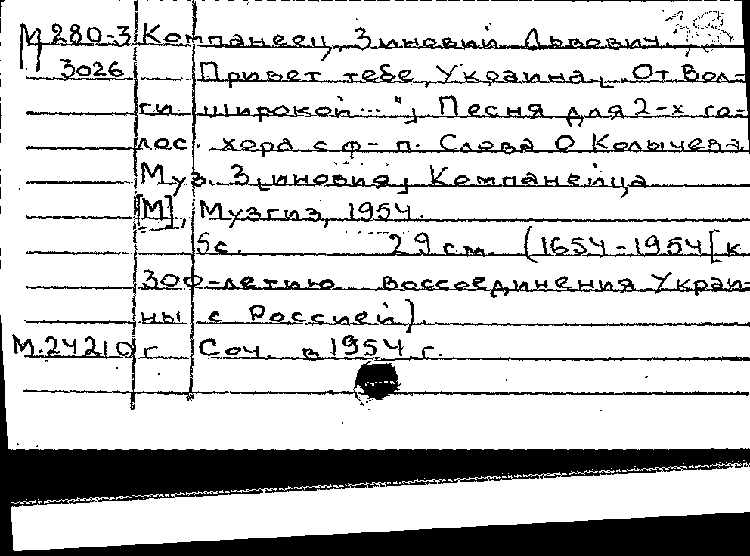 М 280-3 Компанеец, Зиновий Львович. 38
3026 Привет тебе, Украина [„От Вол-
ги широкой..."] Песня для 2-х го-
лос. хора с ф-п. Слова О Колычева
Муз. З[иновия] Компанейца
[М], Музгиз, 1954.
5с. 29 см. (1654-1954 [к
300-летию воссоединения Украи-
ны с Россией).
М.24210 г Соч. в 1954 г.